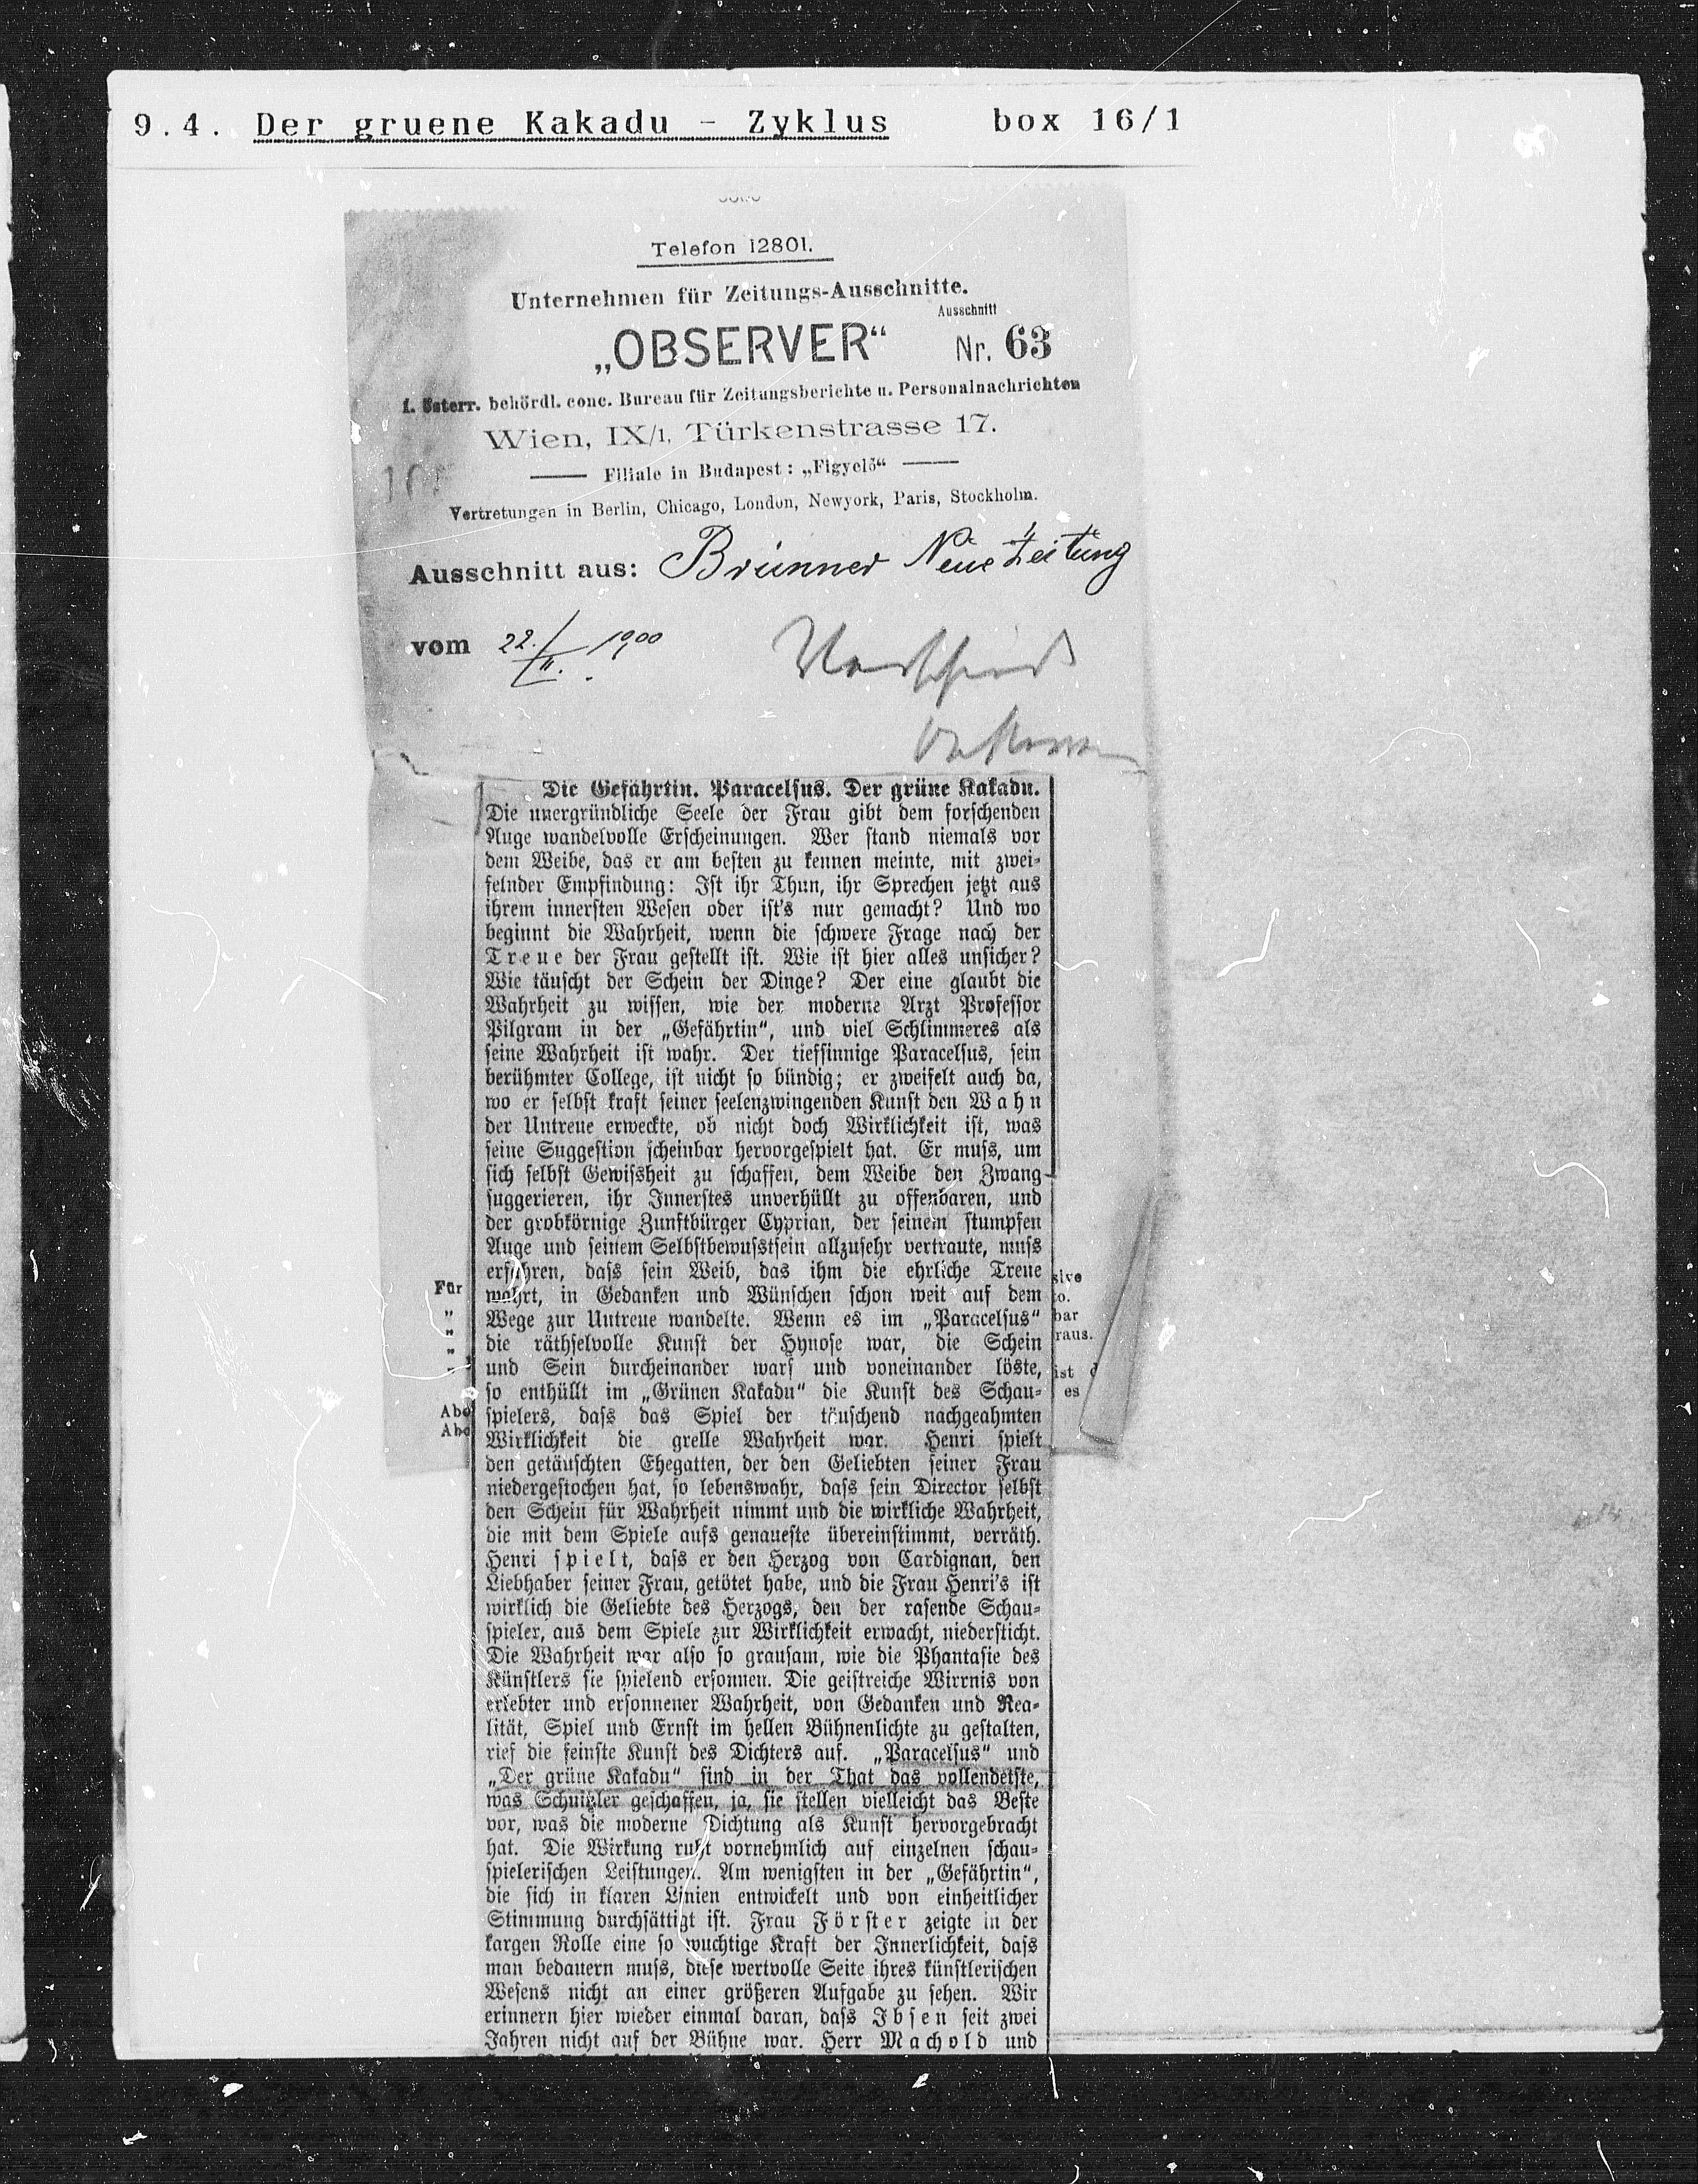 9.4. Der gruene Kakadu - Zyklus box 16/1
Telefon 12801.
Unternehmen für Zeitungs-Ausschnitte.
Ausschnitt
„OBSERVER“ Nr. 63
I. österr. behördl. conc. Bureau für Zeitungsberichte u. Personalnachrichten
Wien, IX/1, Türkenstrasse 17.
Filiale in Budapest: „Figyelő“
Vertretungen in Berlin, Chicago, London, Newyork, Paris, Stockholm.
Ausschnitt aus: Brünner Neue Zeitung
vom 22./II. 1900
Die Gefährtin. Paracelsus. Der grüne Kakadu.
Die unergründliche Seele der Frau gibt dem forschenden
Auge wandelvolle Erscheinungen. Wer stand niemals vor
dem Weibe, das er am besten zu kennen meinte, mit zwei-
felnder Empfindung: Ist ihr Thun, ihr Sprechen jetzt aus
ihrem innersten Wesen oder ist's nur gemacht? Und wo
beginnt die Wahrheit, wenn die schwere Frage nach der
Treue der Frau gestellt ist. Wie ist hier alles unsicher?
Wie täuscht der Schein der Dinge? Der eine glaubt die
Wahrheit zu wissen, wie der moderne Arzt Professor
Pilgram in der „Gefährtin“, und viel Schlimmeres als
seine Wahrheit ist wahr. Der tiefsinnige Paracelsus, sein
berühmter College, ist nicht so bündig; er zweifelt auch da,
wo er selbst kraft seiner seelenzwingenden Kunst den Wahn
der Untreue erweckte, ob nicht doch Wirklichkeit ist, was
seine Suggestion scheinbar hervorgespielt hat. Er muss, um
sich selbst Gewissheit zu schaffen, dem Weibe den Zwang
suggerieren, ihr Innerstes unverhüllt zu offenbaren, und
der grobkörnige Zunftbürger Cyprian, der seinem stumpfen
Auge und seinem Selbstbewusstsein allzusehr vertraute, muss
erfahren, dass sein Weib, das ihm die ehrliche Treue
Für wahrt, in Gedanken und Wünschen schon weit auf dem
„ Wege zur Untreue wandelte. Wenn es im „Paracelsus“ bar
„ die räthselvolle Kunst der Hynose war, die Schein raus.
„ und Sein durcheinander warf und voneinander löste, ist
so enthüllt im „Grünen Kakadu“ die Kunst des Schau- es
Abo spielers, dass das Spiel der täuschend nachgeahmten
Abo Wirklichkeit die grelle Wahrheit war. Henri spielt
den getäuschten Ehegatten, der den Geliebten seiner Frau
niedergestochen hat, so lebenswahr, dass sein Director selbst
den Schein für Wahrheit nimmt und die wirkliche Wahrheit,
die mit dem Spiele aufs genaueste übereinstimmt, verräth.
Henri spielt, dass er den Herzog von Cardignan, den
Liebhaber seiner Frau, getötet habe, und die Frau Henri's ist
wirklich die Geliebte des Herzogs, den der rasende Schau-
spieler, aus dem Spiele zur Wirklichkeit erwacht, niedersticht.
Die Wahrheit war also so grausam, wie die Phantasie des
Künstlers sie spielend ersonnen. Die geistreiche Wirrnis von
erlebter und ersonnener Wahrheit, von Gedanken und Rea-
lität, Spiel und Ernst im hellen Bühnenlichte zu gestalten,
rief die feinste Kunst des Dichters auf. „Paracelsus“ und
„Der grüne Kakadu“ sind in der That das vollendetste,
was Schnitzler geschaffen, ja, sie stellen vielleicht das Beste
vor, was die moderne Dichtung als Kunst hervorgebracht
hat. Die Wirkung ruht vornehmlich auf einzelnen schau-
spielerischen Leistungen. Am wenigsten in der „Gefährtin“,
die sich in klaren Linien entwickelt und von einheitlicher
Stimmung durchsättigt ist. Frau Förster zeigte in der
kargen Rolle eine so wuchtige Kraft der Innerlichkeit, dass
man bedauern muss, diese wertvolle Seite ihres künstlerischen
Wesens nicht an einer größeren Aufgabe zu sehen. Wir
erinnern hier wieder einmal daran, dass Ibsen seit zwei
Jahren nicht auf der Bühne war. Herr Machold und